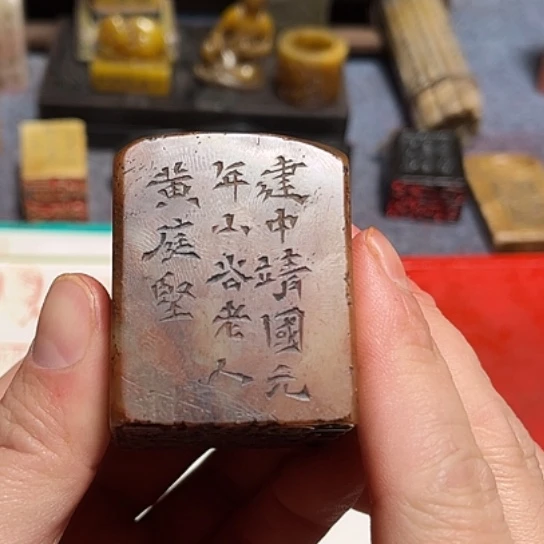 建中靖國元
年山谷老人
黃庭堅